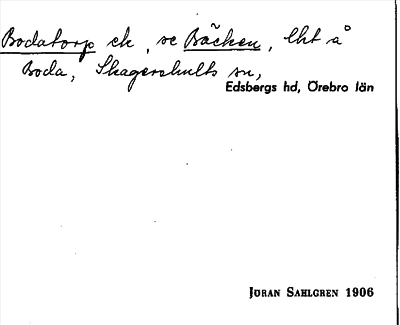 Bodatorp ek, se Bäcken, lht å
Boda, Skagershults sn,
Edsbergs hd, Örebro län
JÖRAN SAHLGREN 1906